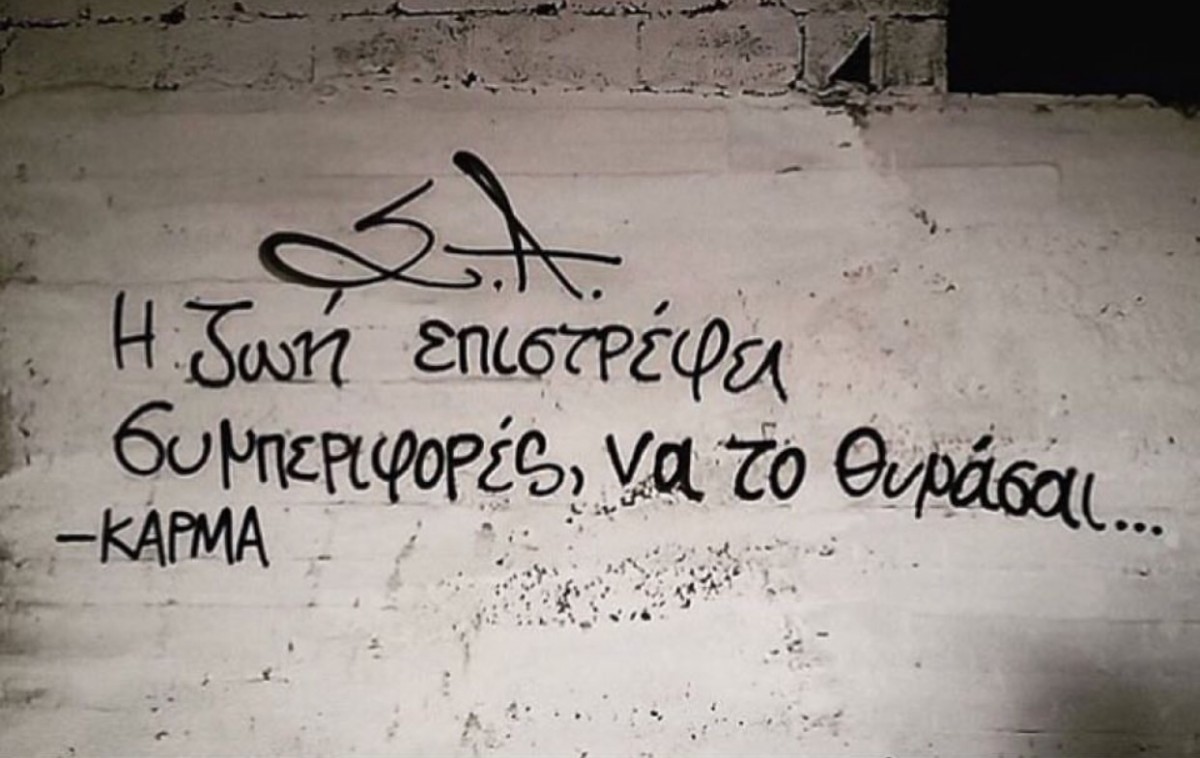 Σ.Α.
Η ζωή επιστρέφει
συμπεριφορές, να το θυμάσαι...
-ΚΑΡΜΑ